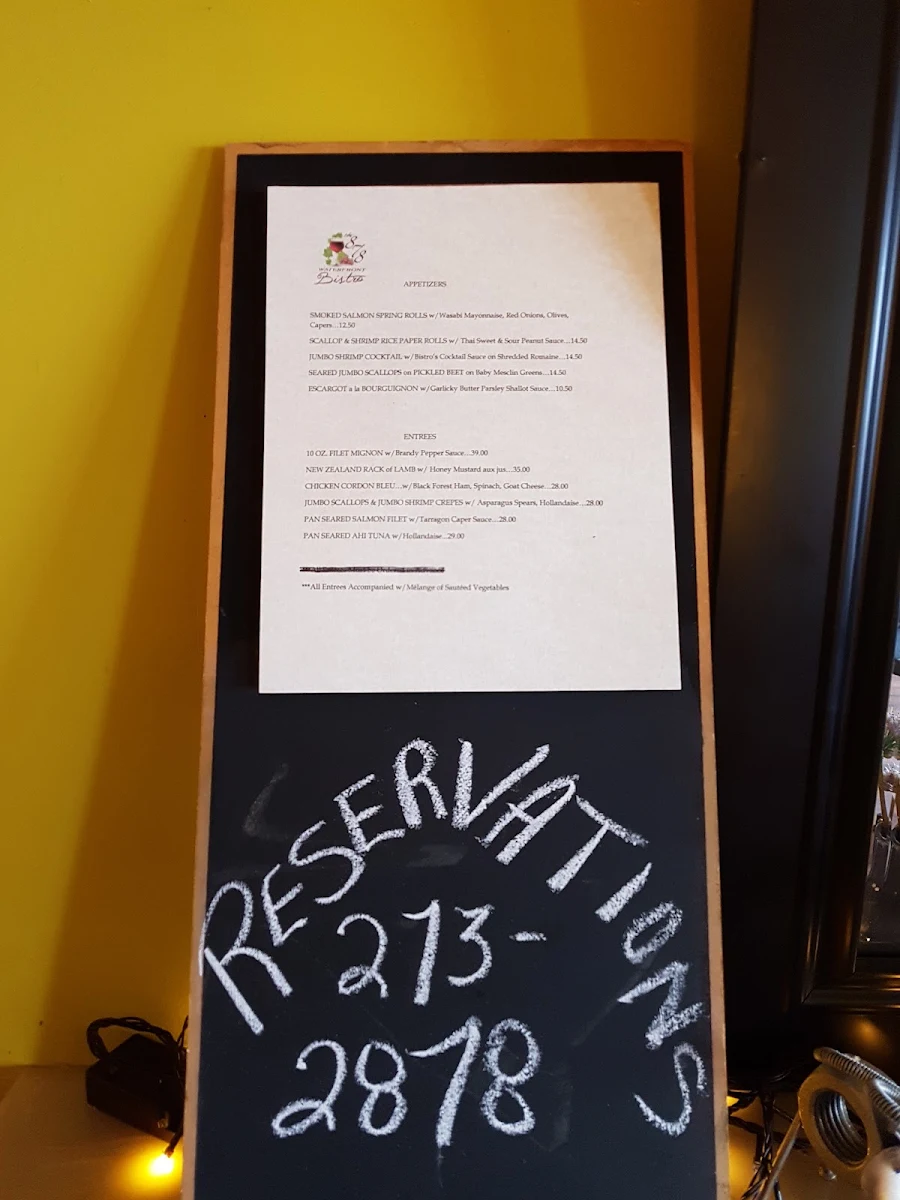 the
878
WATERFRONT
Bistro
APPETIZERS
SMOKED SALMON SPRING ROLLS w/Wasabi Mayonnaise, Red Onions, Olives,
Capers...12.50
SCALLOP & SHRIMP RICE PAPER ROLLS w/ Thai Sweet & Sour Peanut Sauce...14.50
JUMBO SHRIMP COCKTAIL w/Bistro's Cocktail Sauce on Shredded Romaine...14.50
SEARED JUMBO SCALLOPS on PICKLED BEET on Baby Mesclin Greens....14.50
ESCARGOT a la BOURGUIGNON w/Garlicky Butter Parsley Shallot Sauce...10.50
ENTREES
10 OZ. FILET MIGNON w/Brandy Pepper Sauce....39.00
NEW ZEALAND RACK of LAMB w/ Honey Mustard aux jus....35.00
CHICKEN CORDON BLEU....w/Black Forest Ham, Spinach, Goat Cheese...28.00
JUMBO SCALLOPS & JUMBO SHRIMP CREPES w/ Asparagus Spears, Hollandaise...28.00
PAN SEARED SALMON FILET w/Tarragon Caper Sauce...28.00
PAN SEARED AHI TUNA w/Hollandaise...29.00
***All Entrees Accompanied w/Mélange of Sautéed Vegetables
RESERVATIONS
273-
2878